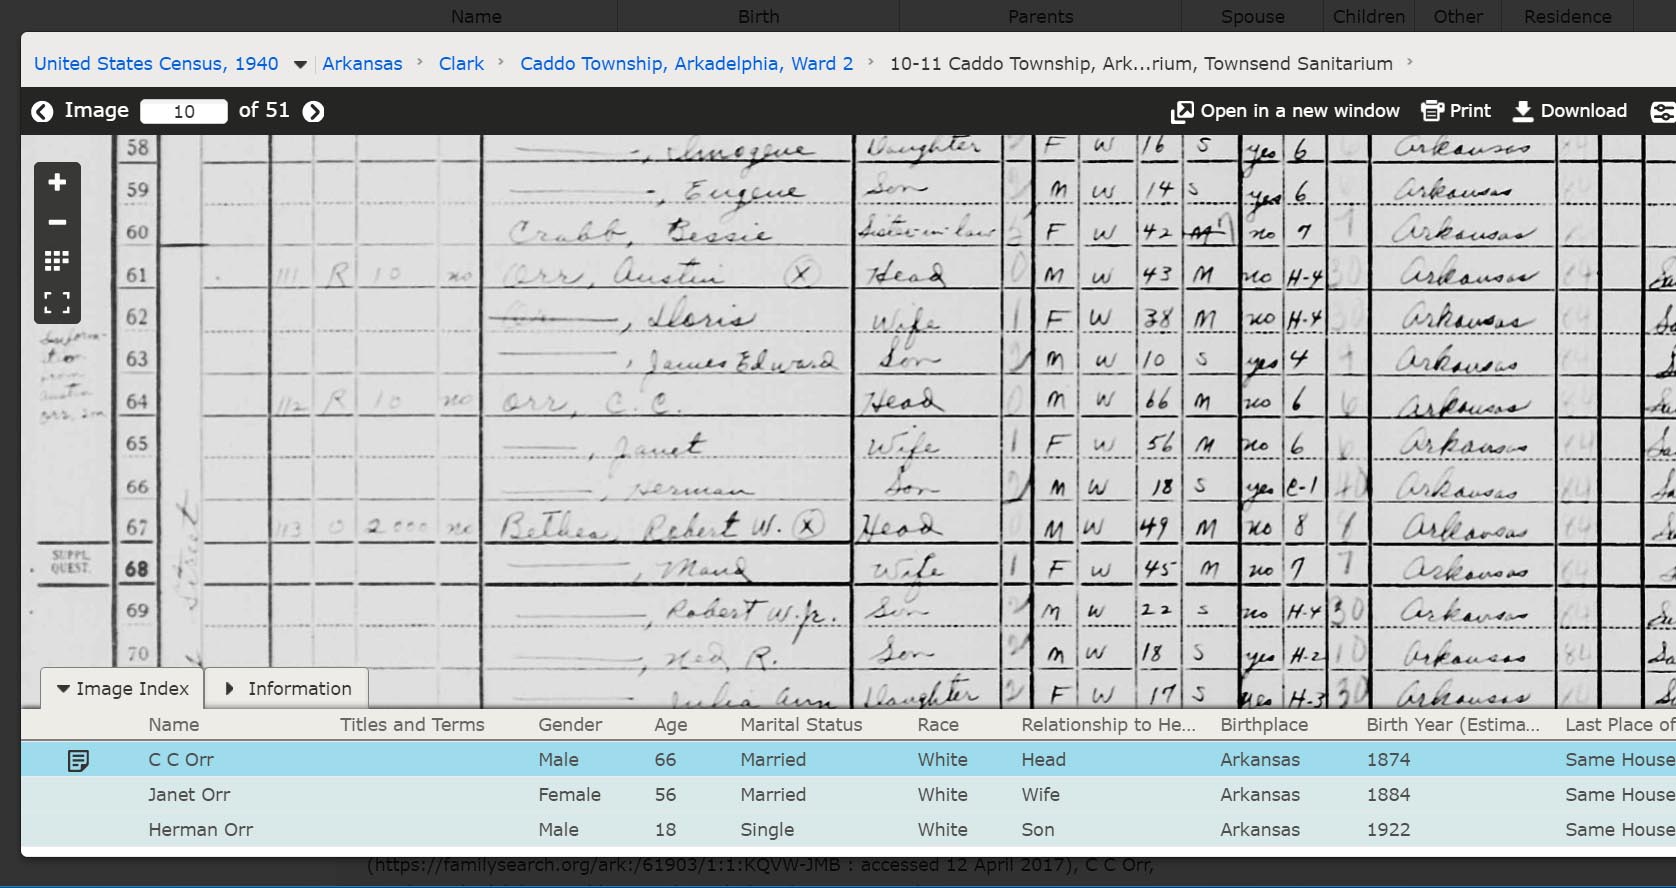 Name Birth Parents Spouse Children Other Residence
United States Census, 1940 Arkansas › Clark › Caddo Township, Arkadelphia, Ward 2 › 10-11 Caddo Township, Ark...rium, Townsend Sanitarium ›
Image 10 of 51 Open in a new window Print Download
58 ———, Imogene Daughter 2 F W 16 S yes 6 Arkansas
59 ———, Eugene Son 2 M W 14 S yes 6 Arkansas
60 Crabb, Bessie Sister-in-law F W 42 M 7 no 7 7 Arkansas
61 111 R 10 no Orr, Austin X Head 0 M W 43 M no H-4 30 Arkansas
62 ———, Doris Wife 1 F W 38 M no H-4 30 Arkansas
63 ———, James Edward Son 2 M W 10 S yes 4 4 Arkansas
64 112 R 10 no Orr, C. C. Head 0 M W 66 M no 6 6 Arkansas
65 ———, Janet Wife 1 F W 56 M no 6 6 Arkansas
66 ———, Herman Son 2 M W 18 S yes C-1 40 Arkansas
67 113 O 2000 no Bethea, Robert W. X Head 0 M W 49 M no 8 8 Arkansas
SUPPL. QUEST. 68 ———, Maud Wife 1 F W 45 M no 7 7 Arkansas
69 ———, Robert W. Jr. Son 2 M W 22 S no H-4 30 Arkansas
70 ———, Ned R. Son 2 M W 18 S yes H-2 10 Arkansas
———, Julia Ann Daughter 2 F W 17 S yes H-3 30 Arkansas
Information from Austin Orr, son
Street
Image Index Information
Name Titles and Terms Gender Age Marital Status Race Relationship to He... Birthplace Birth Year (Estima... Last Place of
C C Orr Male 66 Married White Head Arkansas 1874 Same House
Janet Orr Female 56 Married White Wife Arkansas 1884 Same House
Herman Orr Male 18 Single White Son Arkansas 1922 Same House
(https://familysearch.org/ark:/61903/1:1:KQVW-JMB : accessed 12 April 2017), C C Orr,